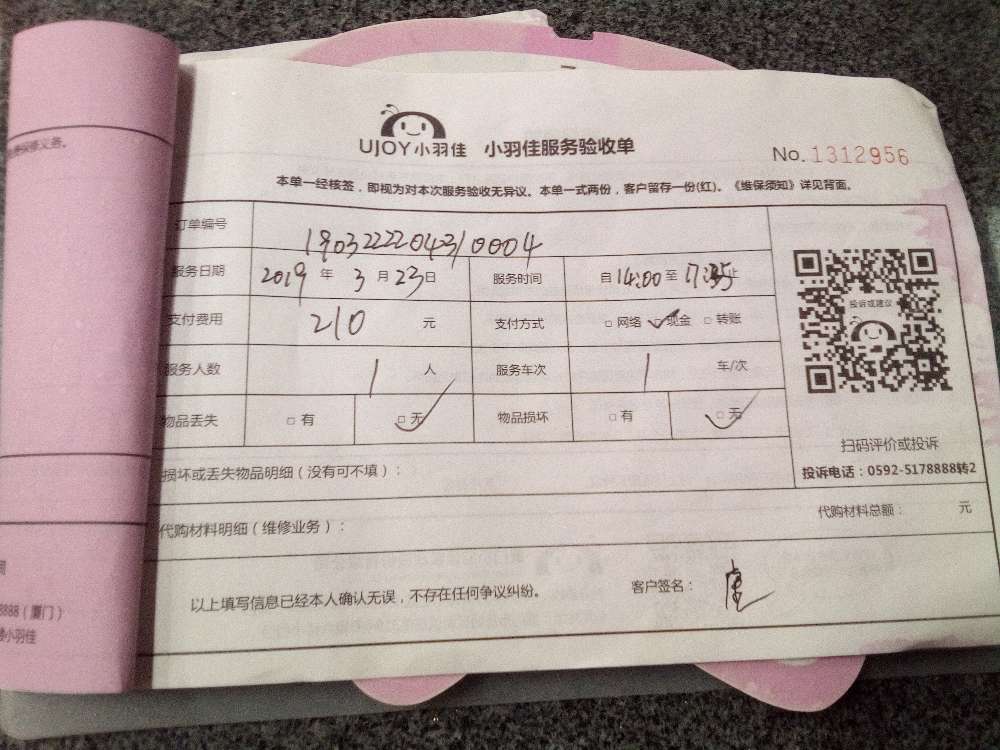 UJOY小羽佳 小羽佳服务验收单
No. 1312956
本单一经核签，即视为对本次服务验收无异议。本单一式两份，客户留存一份(红)。《维保须知》详见背面。
订单编号 1903222204310004
服务日期 2019 年 3 月 23 日 服务时间 自 14:00 至 止
支付费用 210 元 支付方式 □ 网络 □ 现金 □ 转账
服务人数 1 人 服务车次 1 车/次
物品丢失 □ 有 □ 无 物品损坏 □ 有 □ 无
投诉或建议
扫码评价或投诉
投诉电话：0592-5178888转2
损坏或丢失物品明细（没有可不填）：
代购材料明细（维修业务）： 代购材料总额： 元
以上填写信息已经本人确认无误，不存在任何争议纠纷。 客户签名：
保义务。
8888（厦门）
小羽佳